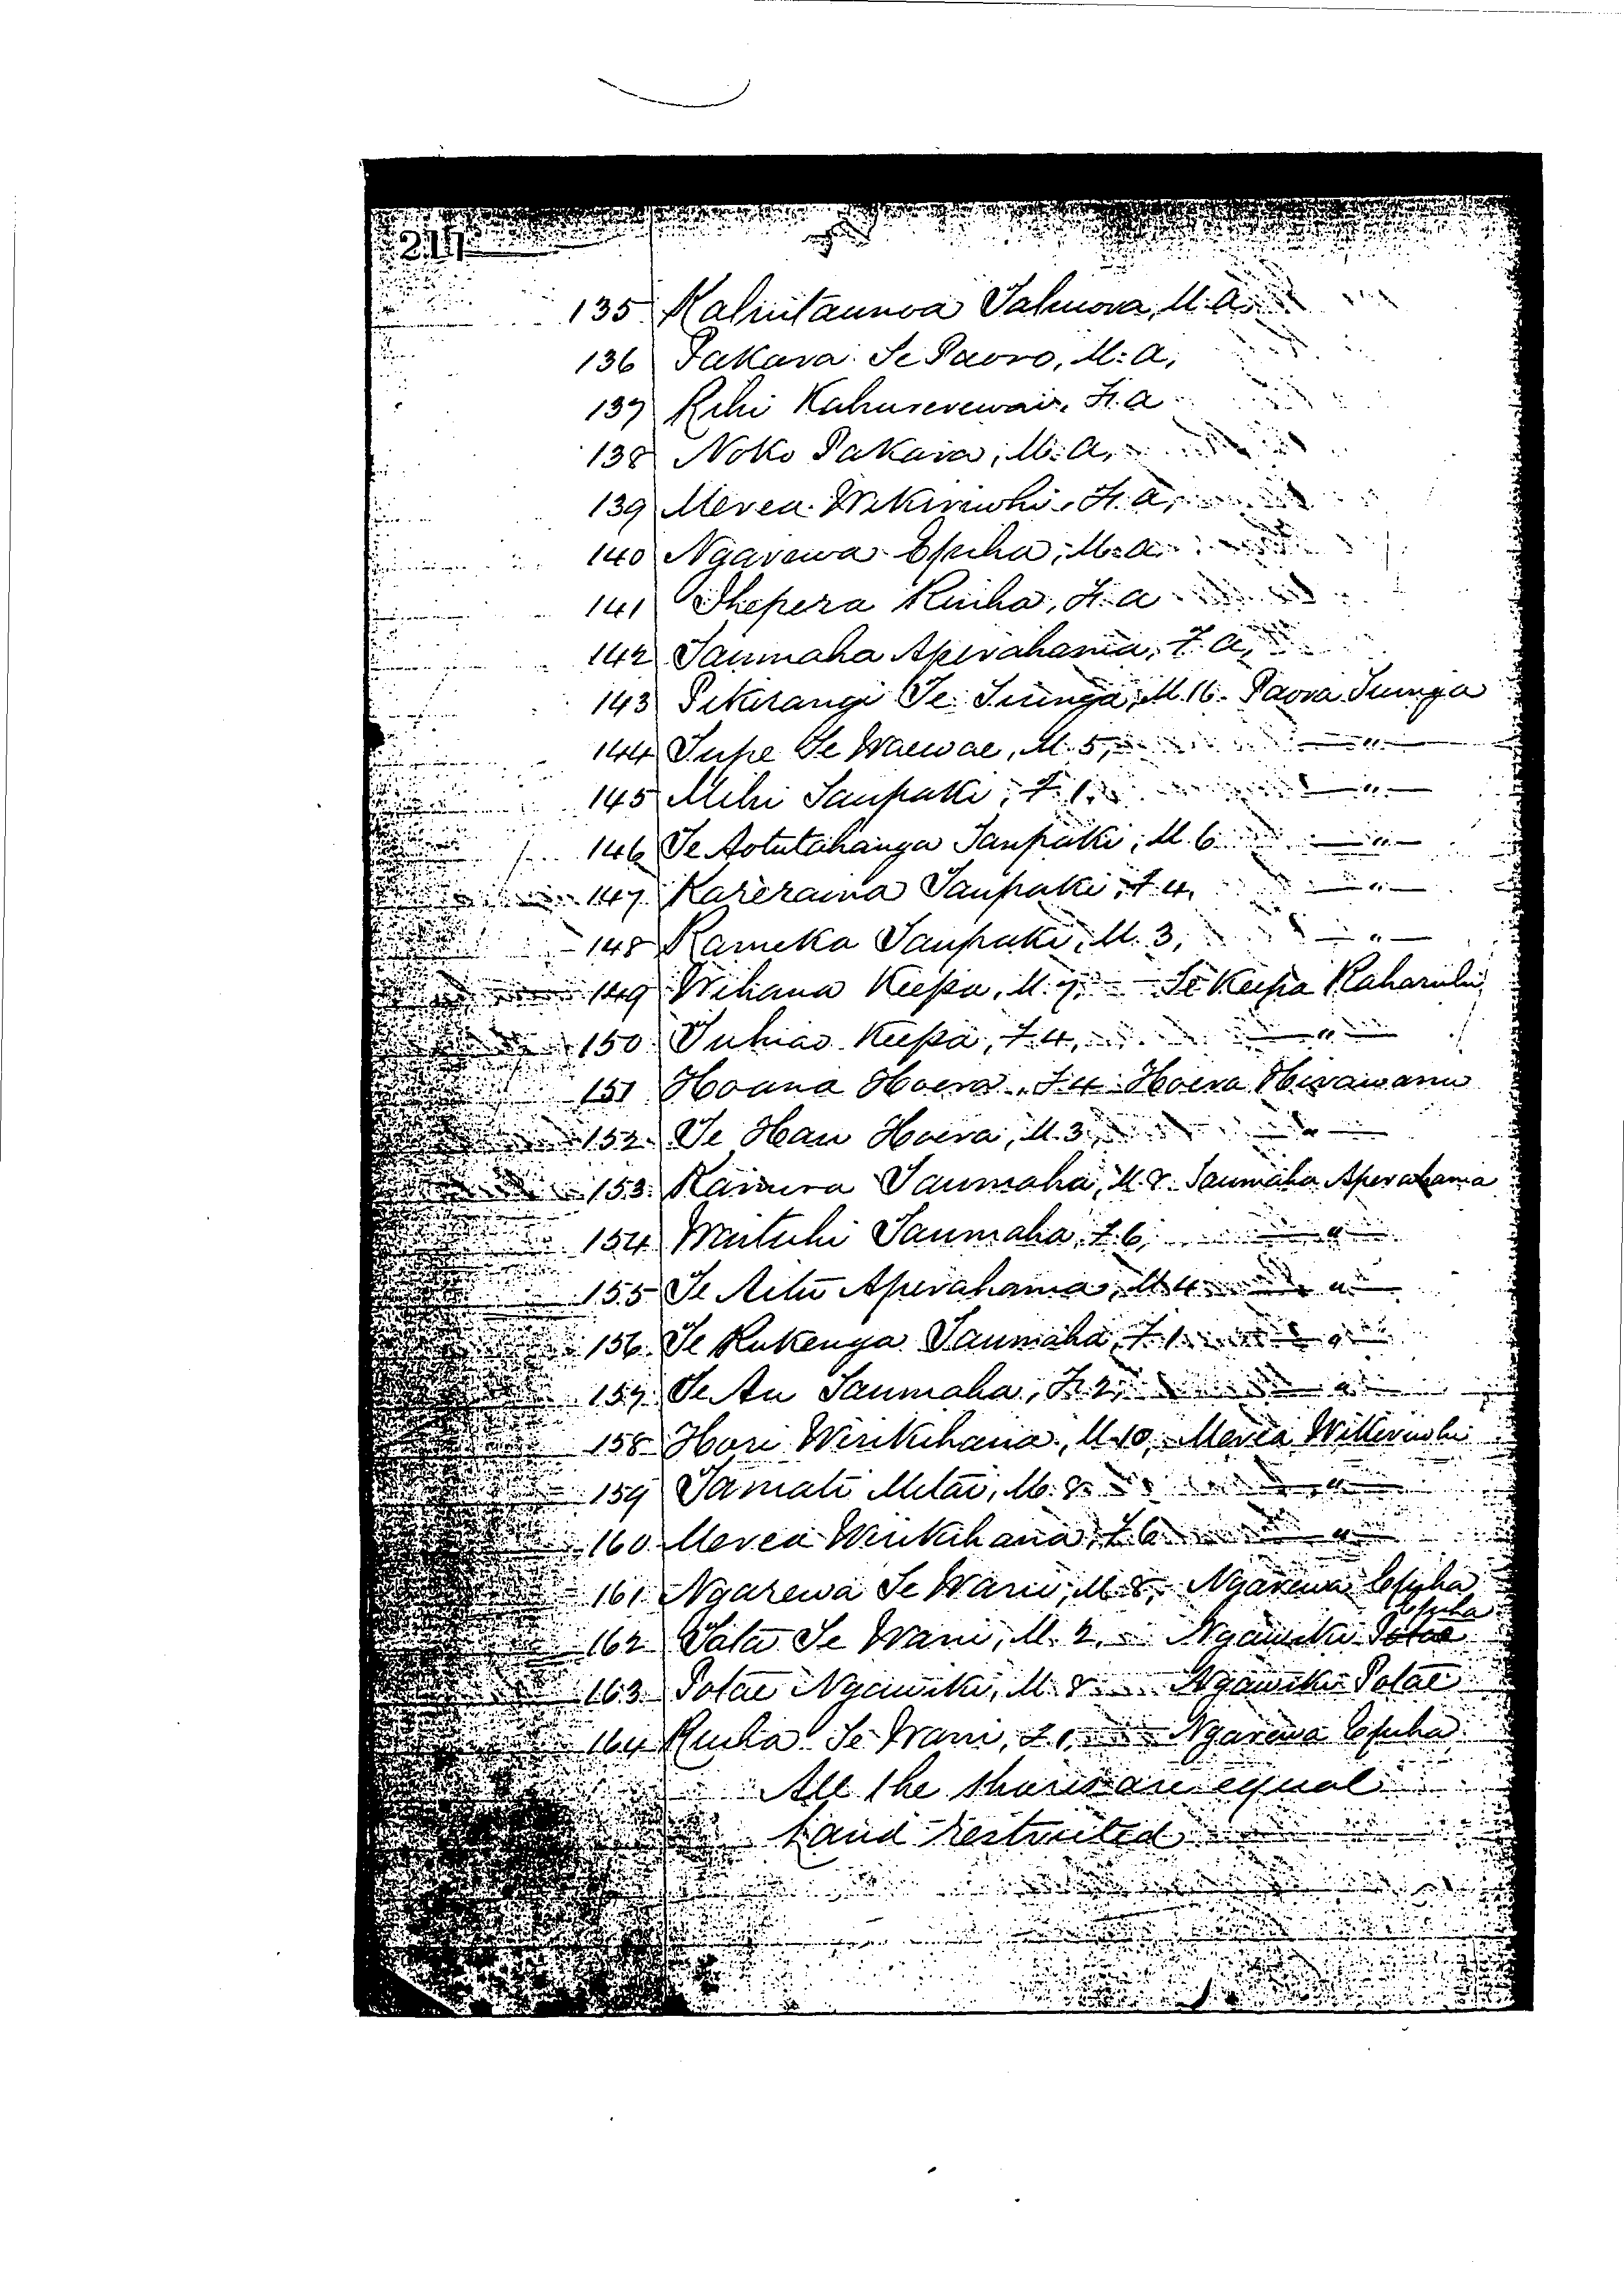 217
135 Kahutaunoa Tahuora, M. a.
136 Pakara Te Paoro, M. a,
137 Rihi Kahurerewai, F. a
138 Noko Pakara, M. a,
139 Merea Wikiriwhi, F. a,
140 Ngarewa Epiha, M. a.
141 Ihepera Ruiha, F. a
142 Taumaha Aperahama, F. a,
143 Pikirangi Te Tiunga, M. 16. Paora Tiunga
144 Tupe Te Waewae, M. 5, — " —
145 Mihi Taupaki, F 1. — " —
146 Te Aotutahanga Taupaki, M. 6 — " —
147 Kareraina Taupaki, F 4, — " —
148 Rameka Taupaki, M. 3, — " —
149 Wihana Keepa, M. 7. Te Keepa Raharuhi
150 Tuhiao Keepa, F 4, — " —
151 Hoana Hoera, F 4 Hoera Hirawanu
152 Te Hau Hoera, M. 3, — " —
153 Karaura Taumaha, M. 8. Taumaha Aperahama
154 Waituhi Taumaha, F 6, — " —
155 Te Aitu Aperahama, M 4 — " —
156 Te Rukenga Taumaha, F 1. — " —
157 Te Au Taumaha, F. 2, — " —
158 Hori Wirikihana, M. 10, Merea Wikiriwhi
159 Tamati Metai, M. 8. — " —
160 Merea Wirikihana, F. 6 — " —
161 Ngarewa Te Wani, M. 8, Ngarewa Epiha
162 Tata Te Wani, M. 2, Ngawiki Potae Epiha
163 Potae Ngawiki, M. 8 Ngawiki Potae
164 Ruiha Te Wani, F 1, Ngarewa Epiha
All the shares are equal
Land restricted